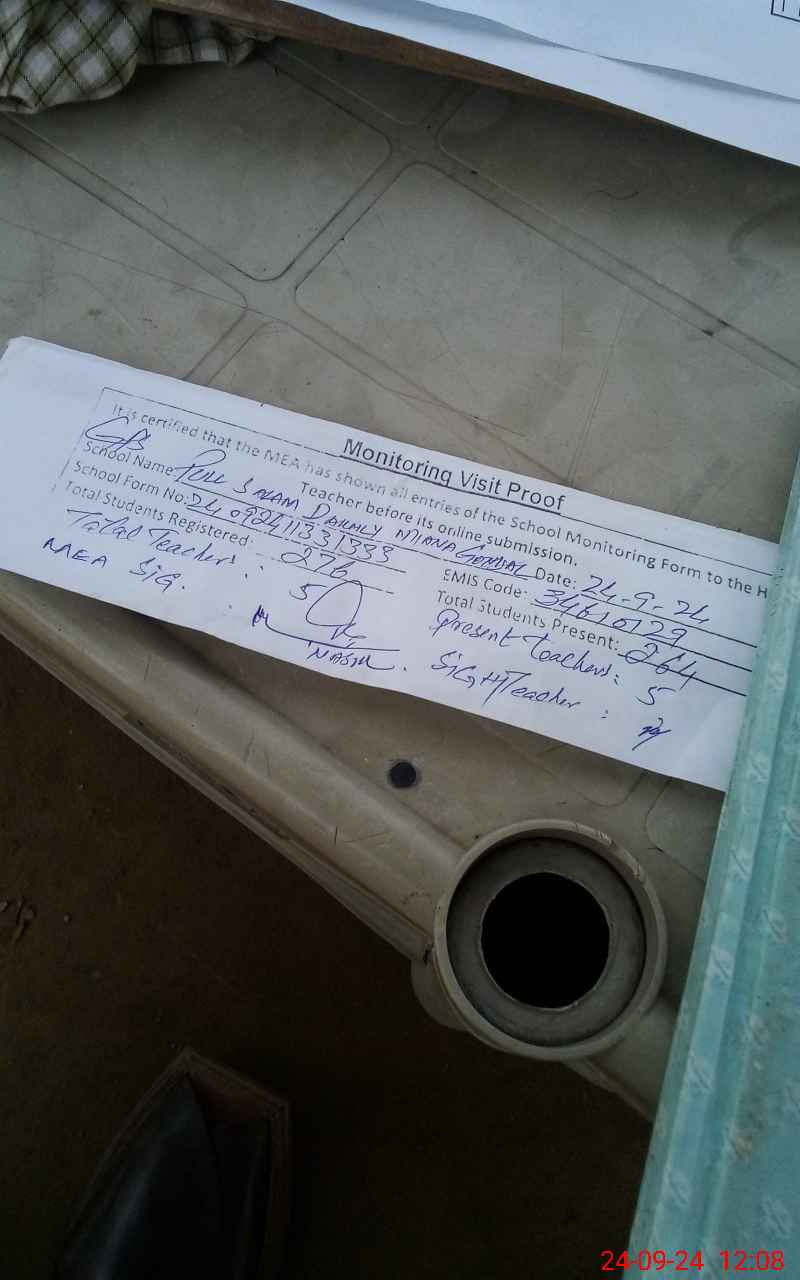 Monitoring Visit Proof
It is certified that the MEA has shown all entries of the School Monitoring Form to the H
Teacher before its online submission.
School Name: PULL SALAM DAKHLY MIANA GONDAL Date: 24-9-24
School Form No: 24092411331333 EMIS Code: 34610129
Total Students Registered: 276 Total Students Present: 264
Total Teachers: 5 Present Teachers: 5
MEA SIG. : NASIR. SIG H/Teacher :
24-09-24 12:08